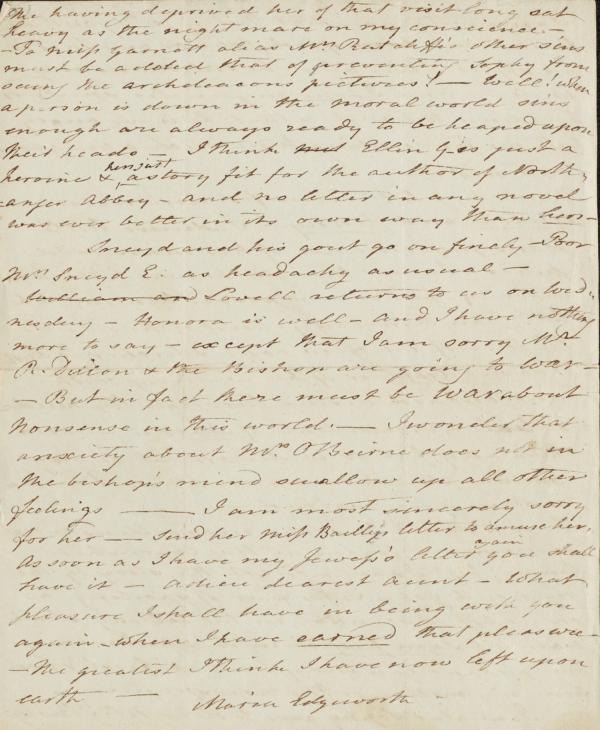 the having deprived her of that visit long sat
heavy as the night mare on my conscience. —
— To Miss Garnett alias Mrs Ratcliffe's other sins
must be added that of preventing Sophy from
seeing the archdeacons pictures! — Well! when
a person is down in the moral world sins
enough are always ready to be heaped upon
their heads — I think Ellin G is just a
heroine & hers just a story fit for the author of North-
anger Abbey — and no letter in any novel
was ever better in its own way than hers —
Sneyd and his gout go on finely — Poor
Mrs Sneyd E. as headachy as usual —
William and Lovell returns to us on Wed-
nesday — Honora is well — and I have nothing
more to say — except that I am sorry Mr
R. Dixon & the Bishop are going to war —
— But in fact there must be war about
nonsense in this world. — I wonder that
anxiety about Mrs O'Beirne does not in
the bishop's mind swallow up all other
feelings — I am most sincerely sorry
for her — send her Miss Baillie's letter to amuse her.
As soon as I have my Jewess's letter again you shall
have it — adieu dearest aunt — What
pleasure I shall have in being with you
again — when I have earned that pleasure —
— the greatest I think I have now left upon
earth —
Maria Edgeworth